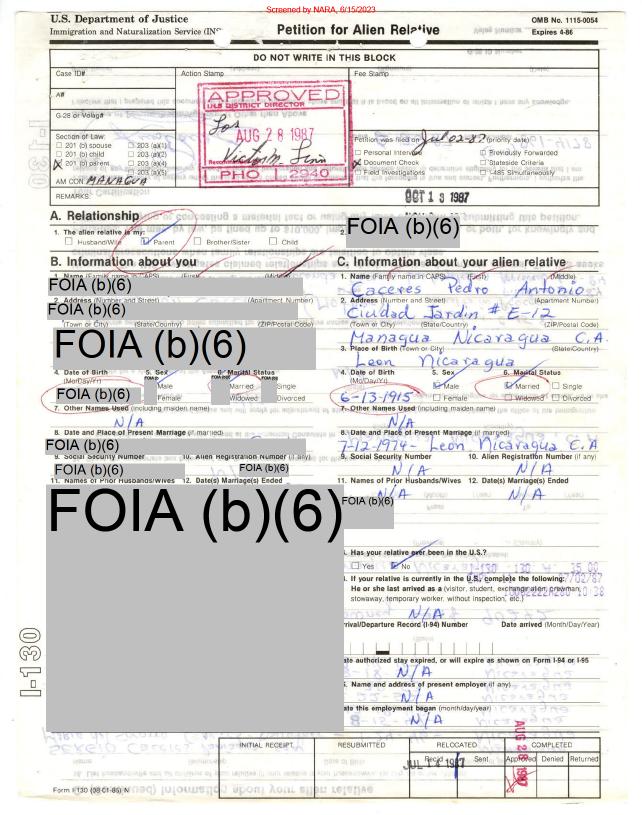 Screened by NARA, 6/15/2023
U.S. Department of Justice
Immigration and Naturalization Service (INS
Petition for Alien Relative
OMB No. 1115-0054
Expires 4-86
DO NOT WRITE IN THIS BLOCK
Case ID#
Action Stamp
Fee Stamp
A#
G-28 or Volag#
APPROVED
INS DISTRICT DIRECTOR
Los
AUG 28 1987
PHO 2940
Section of Law:
201 (b) spouse 203 (a)(1)
201 (b) child 203 (a)(2)
201 (b) parent 203 (a)(4)
203 (a)(5)
AM CON: MANAGUA
REMARKS:
Petition was filed on Jul 02-87 (priority date)
Personal Interview Previously Forwarded
Document Check Stateside Criteria
Field Investigations I-485 Simultaneously
OCT 13 1987
A. Relationship
1. The alien relative is my:
Husband/Wife Parent Brother/Sister Child
2.
FOIA (b)(6)
B. Information about you
1. Name (Family name in CAPS) (First) (Middle)
FOIA (b)(6)
2. Address (Number and Street) (Apartment Number)
FOIA (b)(6)
(Town or City) (State/Country) (ZIP/Postal Code)
FOIA (b)(6)
4. Date of Birth (Mo/Day/Yr) 5. Sex 6. Marital Status
FOIA (b)(6) Male Married Single
Female Widowed Divorced
7. Other Names Used (including maiden name)
N/A
8. Date and Place of Present Marriage (if married)
FOIA (b)(6)
9. Social Security Number 10. Alien Registration Number (if any)
FOIA (b)(6) FOIA (b)(6)
11. Names of Prior Husbands/Wives 12. Date(s) Marriage(s) Ended
FOIA (b)(6)
C. Information about your alien relative
1. Name (Family name in CAPS) (First) (Middle)
Caceres Pedro Antonio
2. Address (Number and Street) (Apartment Number)
Ciudad Jardin # E-12
(Town or City) (State/Country) (ZIP/Postal Code)
Managua Nicaragua C.A.
3. Place of Birth (Town or City) (State/Country)
Leon Nicaragua
4. Date of Birth (Mo/Day/Yr) 5. Sex 6. Marital Status
6-13-1915 Male Married Single
Female Widowed Divorced
7. Other Names Used (including maiden name)
N/A
8. Date and Place of Present Marriage (if married)
7-12-1974- Leon Nicaragua C.A
9. Social Security Number 10. Alien Registration Number (if any)
N/A N/A
11. Names of Prior Husbands/Wives 12. Date(s) Marriage(s) Ended
FOIA (b)(6) N/A N/A
Has your relative ever been in the U.S.?
Yes No
If your relative is currently in the U.S., complete the following:
He or she last arrived as a (visitor, student, exchange alien, crewman,
stowaway, temporary worker, without inspection, etc.)
N/A
rrival/Departure Record (I-94) Number Date arrived (Month/Day/Year)
ate authorized stay expired, or will expire as shown on Form I-94 or I-95
N/A
Name and address of present employer (if any)
N/A
ate this employment began (month/day/year)
N/A
I-130
INITIAL RECEIPT RESUBMITTED RELOCATED COMPLETED
Rec'd Sent Approved Denied Returned
JUL 14 1987
AUG 28 1987
Form I-130 (08-01-85) N